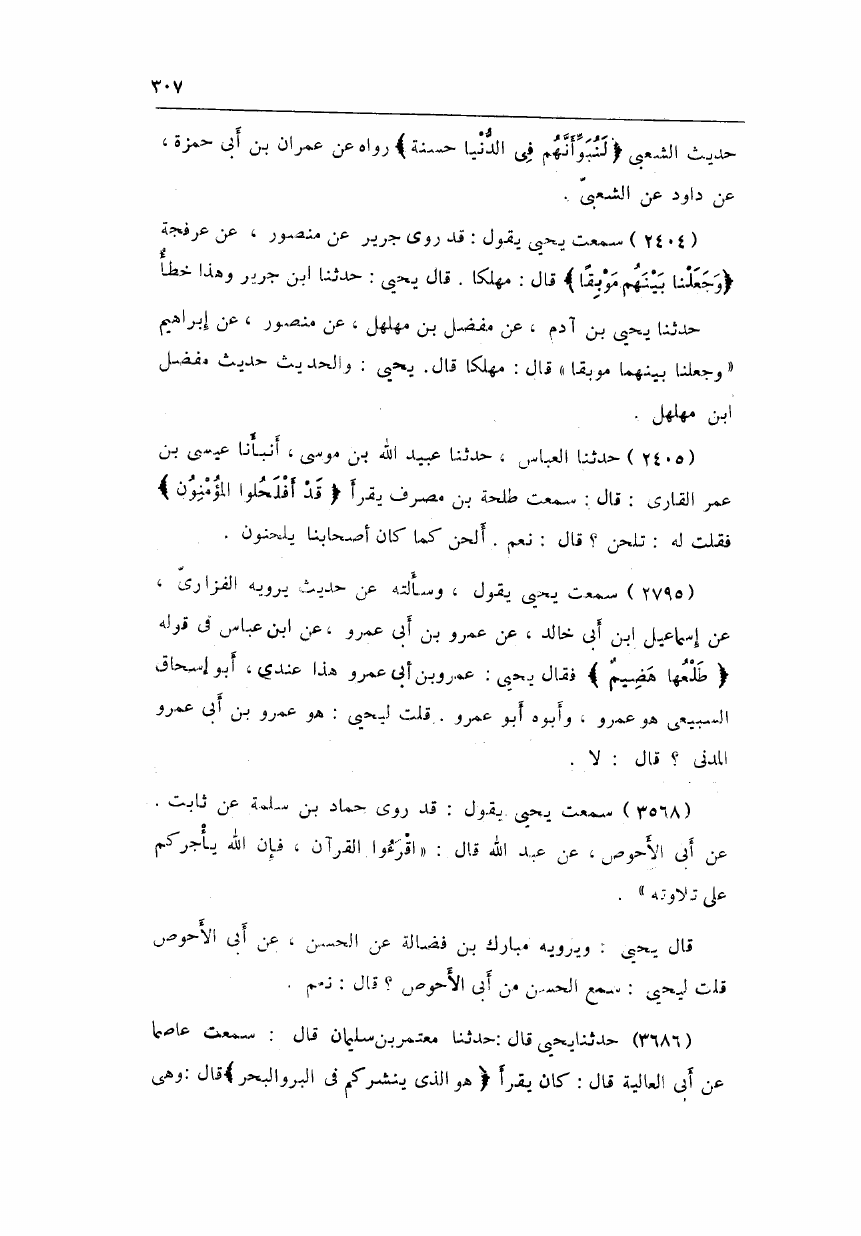 ٣٠٧
حديث الشعبي ﴿ لَنُبَوِّأَنَّهُم فِي الدُّنْيا حسنة ﴾ رواه عن عمران بن أبي حمزة ،
عن داود عن الشعبيّ .
( ٢٤٠٤ ) سمعت يحيى يقول : قد روى جرير عن منصور ، عن عرفجة
﴿وَجَعَلْنا بَيْنَهُم مَوْبِقًا ﴾ قال : مهلكا . قال يحيى : حدثنا ابن جرير وهذا خطأٌ
حدثنا يحيى بن آدم ، عن مفضل بن مهلهل ، عن منصور ، عن إبراهيم
« وجعلنا بينهما موبقا » قال : مهلكا قال. يحيى : والحديث حديث مفضل
ابن مهلهل .
( ٢٤٠٥ ) حدثنا العباس ، حدثنا عبيد الله بن موسى ، أنبأنا عيسى بن
عمر القارى : قال : سمعت طلحة بن مصرف يقرأ ﴿ قَدْ أَفْلَحُوا المُؤْمِنُون ﴾
فقلت له : تلحن ؟ قال : نعم . ألحن كما كان أصحابنا يلحنون .
( ٢٧٩٥ ) سمعت يحيى يقول ، وسألته عن حديث يرويه الفزاريّ ،
عن إسماعيل ابن أبي خالد ، عن عمرو بن أبي عمرو ، عن ابن عباس فى قوله
﴿ طَلْعُها هَضِيمٌ ﴾ فقال يحيى : عمرو بن أبى عمرو هذا عندي ، أبو إسحاق
السبيعى هو عمرو ، وأبوه أبو عمرو . قلت ليحيى : هو عمرو بن أبى عمرو
المدنى ؟ قال : لا .
( ٣٥٦٨ ) سمعت يحيى يقول : قد روى حماد بن سلمة عن ثابت .
عن أبى الأحوص ، عن عبد الله قال : « اقْرَءُوا القرآن ، فإن الله يأْجركم
على تلاوته » .
قال يحيى : ويرويه مبارك بن فضالة عن الحسن ، عن أبى الأحوص
قلت ليحيى : سمع الحسن من أبى الأحوص ؟ قال : نعم .
(٣٦٨٦ ) حدثنا يحيى قال : حدثنا معتمر بن سليمان قال : سمعت عاصما
عن أبى العالية قال : كان يقرأ ﴿ هو الذى ينشركم فى البر والبحر ﴾ قال : وهى